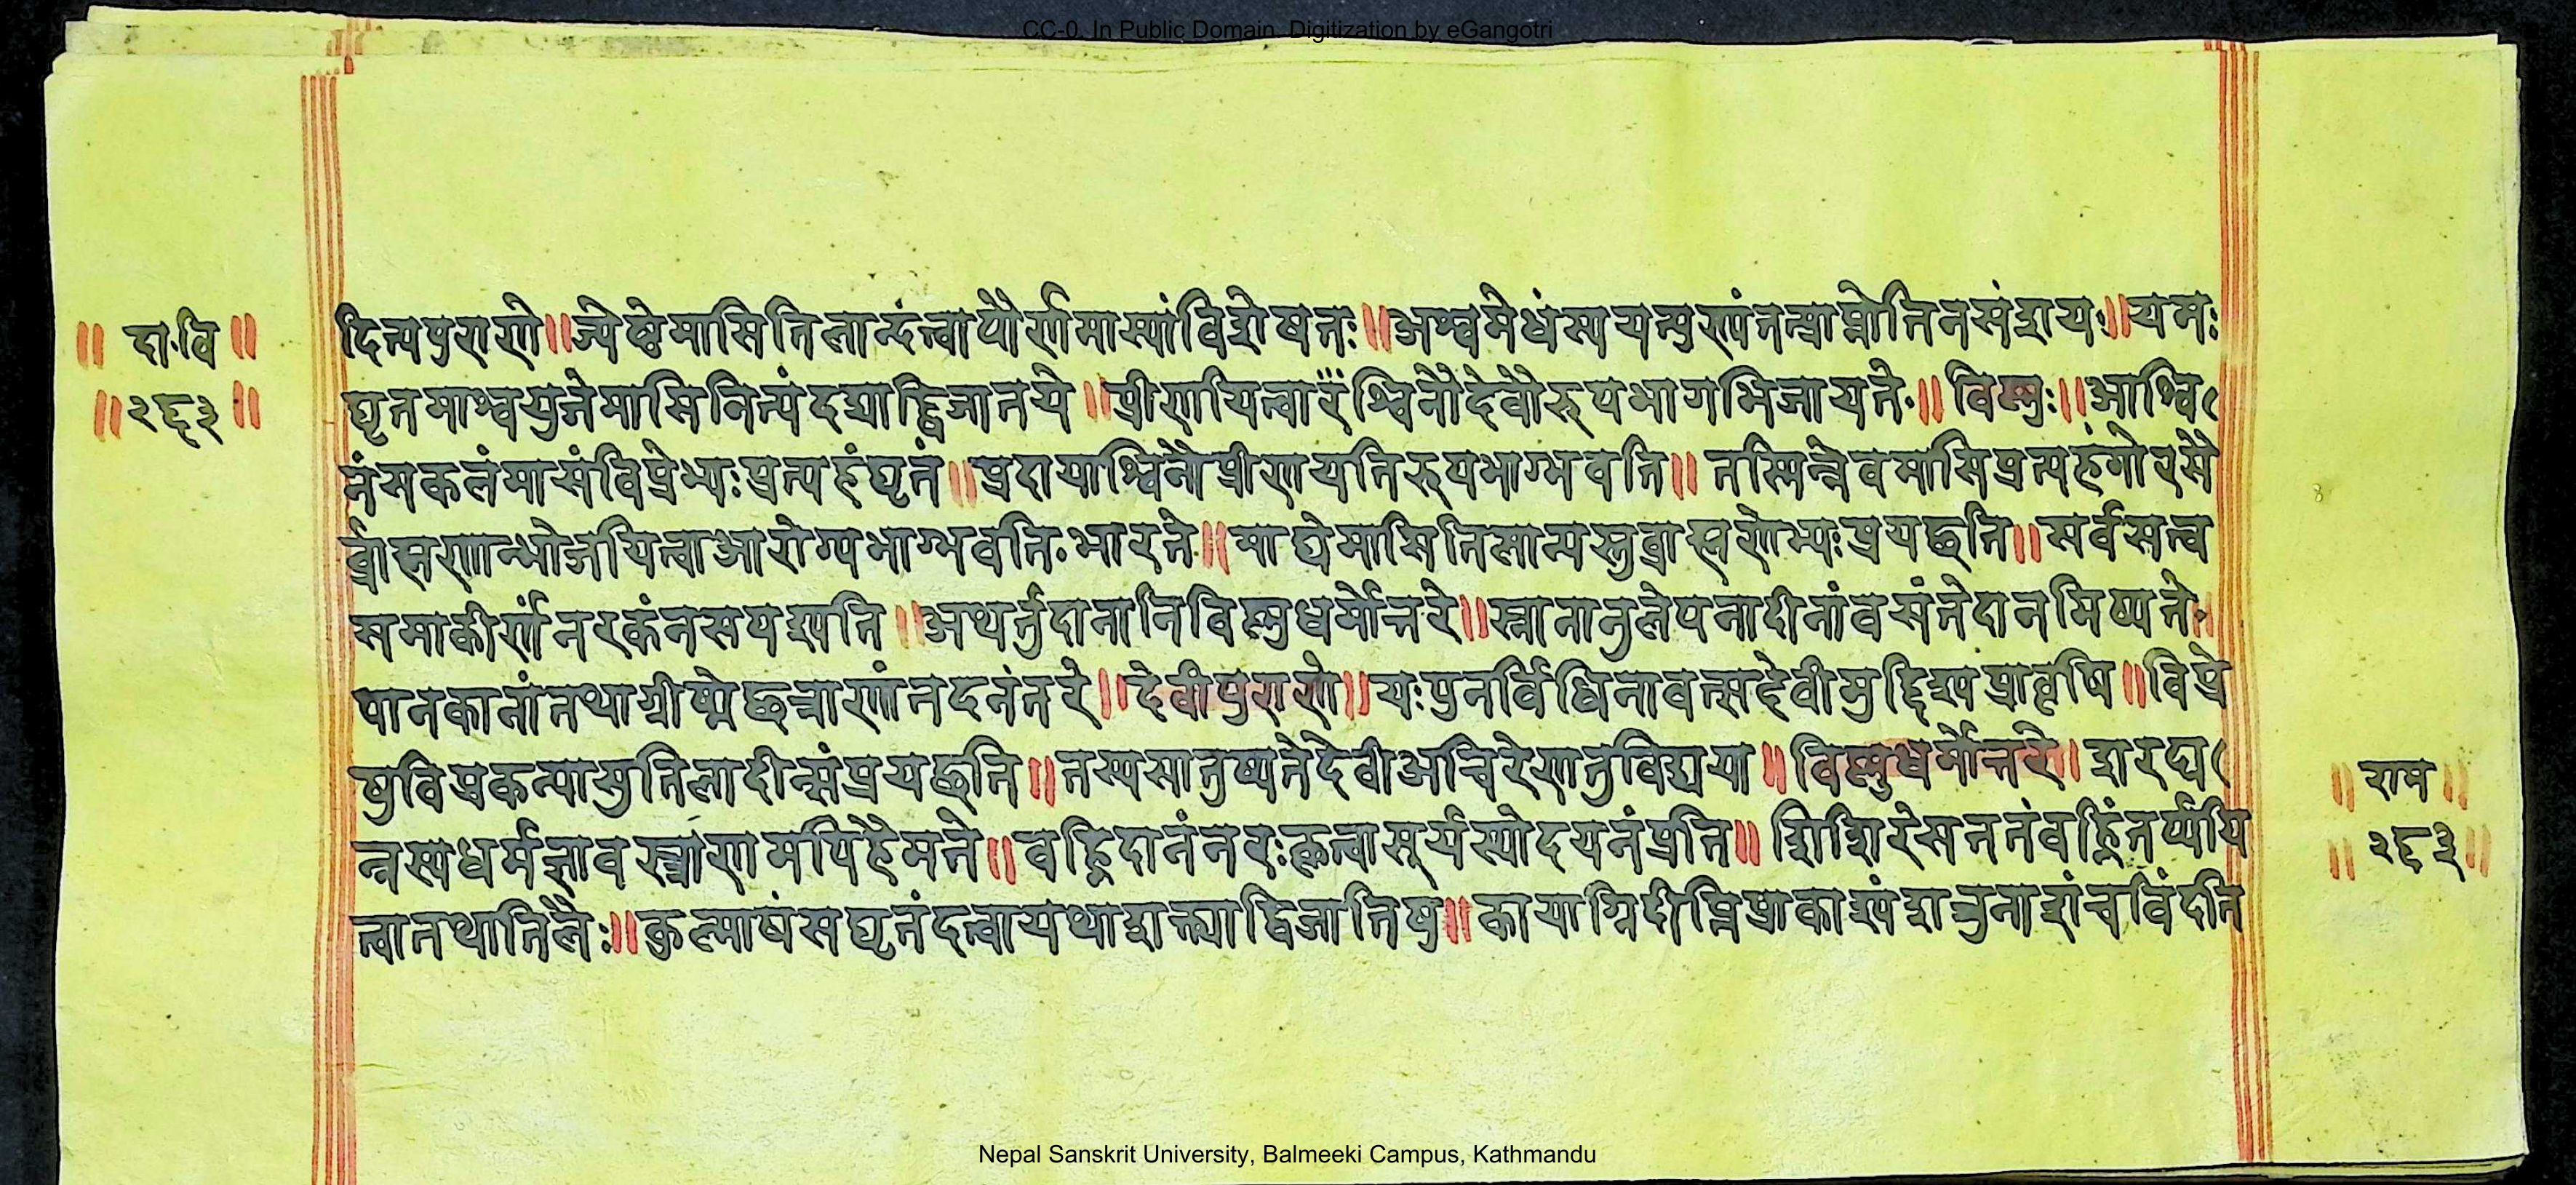 CC-0. In Public Domain. Digitization by eGangotri
॥ दा॰वि ॥
॥ २६३ ॥
दित्यपुराणे ॥ ज्येष्ठेमासितिलान्दत्वापौर्णमास्यांविशेषतः ॥ अश्वमेधस्ययत्पुण्यंतत्प्राप्नोतिनसंशयः ॥ यमः
घृतमाश्वयुजेमासिनित्यंदद्याद्द्विजातये ॥ प्रीणायित्वाश्विनौदेवौरूपभागभिजायते ॥ विष्णुः ॥ आश्वि
नंसकलंमासंविप्रेभ्यःप्रत्यहंघृतं ॥ प्रदायाश्विनौप्रीणायतिरूपभाग्भवति ॥ तस्मिन्नेवमासिप्रत्यहंगोरसै
र्ब्राह्मणान्भोजयित्वाआरोग्यभाग्भवति भारते ॥ माघेमासितिलान्यस्तुब्राह्मणेभ्यःप्रयछति ॥ सर्वसत्व
समाकीर्णंनरकंनसपश्यति ॥ अथर्तुदानानिविष्णुधर्मोत्तरे ॥ स्नानानुलेपनादीनांवसंतेदानमिष्यते
पानकानांतथाग्रीष्मेछत्राणांतदनंतरे ॥ देवीपुराणे ॥ यःपुनर्विधिनावत्सदेवीमुद्दिश्यप्रावृषि ॥ विप्रे
षुविप्रकन्यासुतिलादीन्संप्रयछति ॥ तस्यसातुष्यतेदेवीअचिरेणतुविद्यया ॥ विष्णुधर्मोत्तरे । शरद्य
न्नस्यधर्मज्ञावस्त्राणामपिहैमते ॥ वह्निदानंनरःकृत्वासूर्यस्योदयनंप्रति ॥ शिशिरेसततंवह्निंतर्प्पयि
त्वातथातिलैः ॥ कुल्माषंसघृतंदत्वायथाशक्त्याद्विजातिषु ॥ कायाग्निदीप्तिप्राकाश्यंशत्रुनाशंचविंदति
॥ राम ॥
॥ २६३ ॥
Nepal Sanskrit University, Balmeeki Campus, Kathmandu